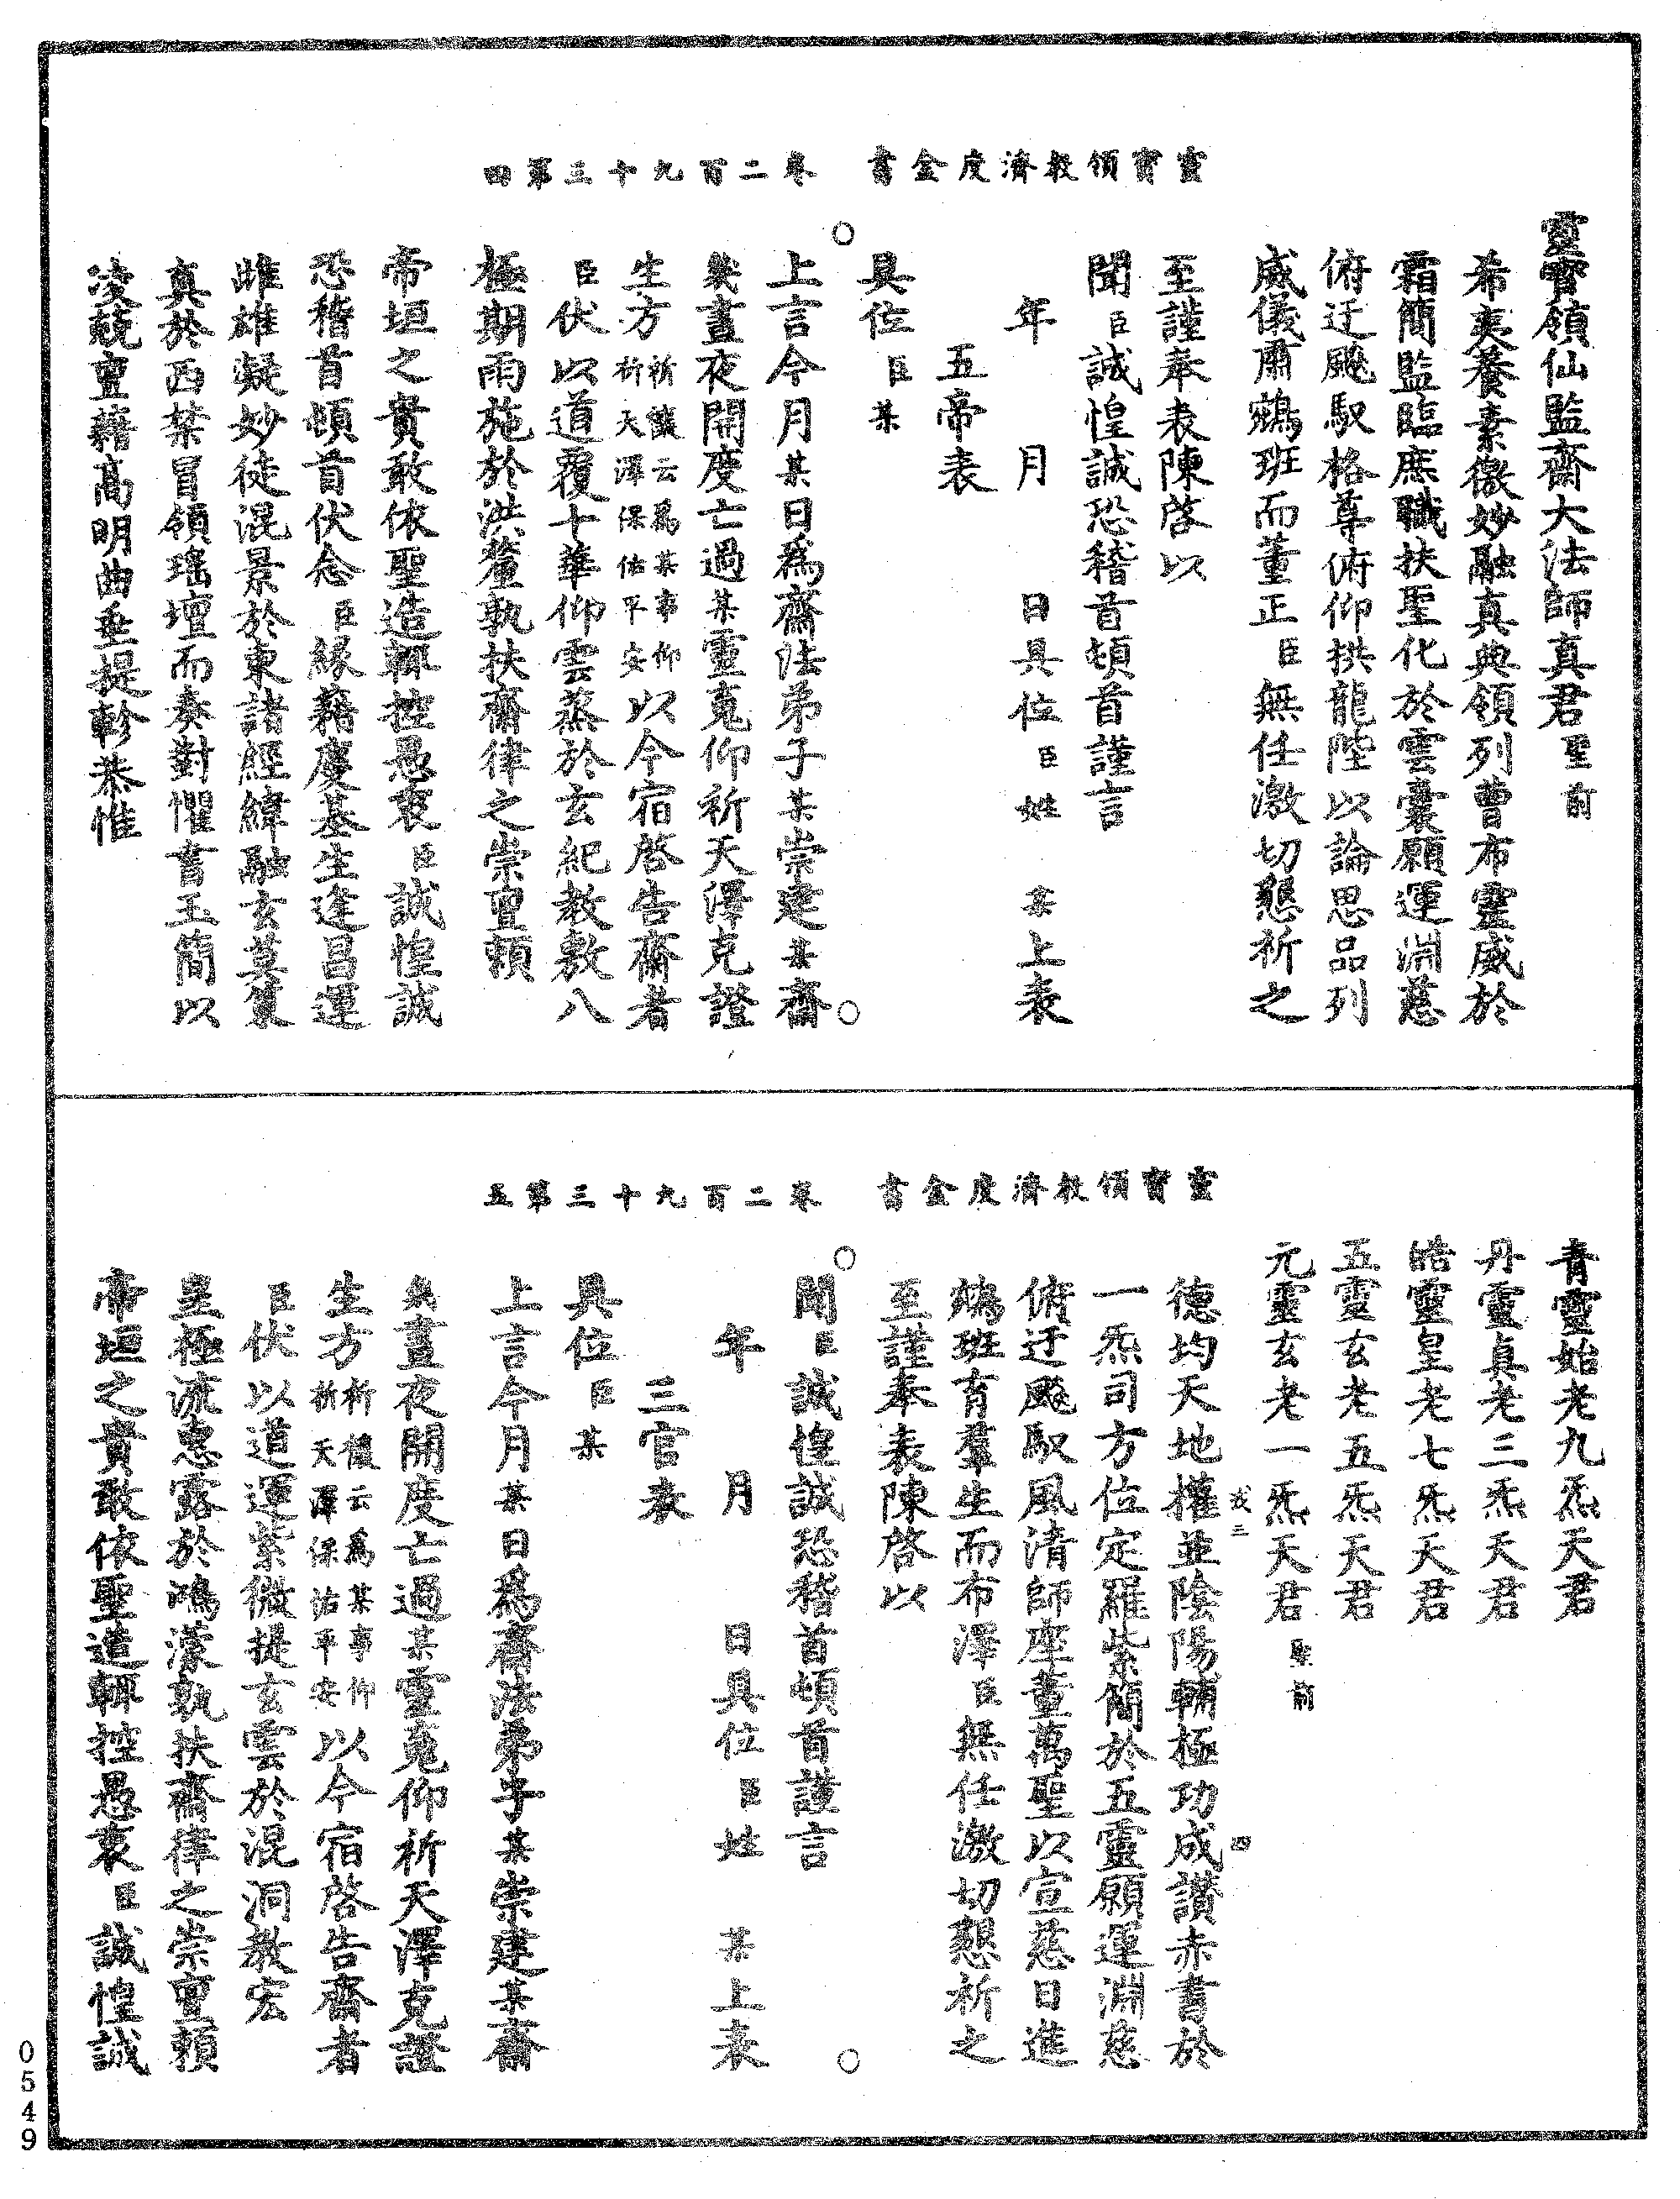 靈寶領教濟度金書　卷二百九十三第四
靈寶領仙監齋大法師真君聖前
希夷養素微妙融真典領列曹布靈威於
霜簡監臨庶職扶聖化於雲囊願運淵慈
俯迂飈馭格尊俯仰拱龍陛以論思品列
威儀肅鵷班而董正臣無任激切懇祈之
至謹奉表陳啓以
聞臣誠惶誠恐稽首頓首謹言
年　月　日具位臣姓　某上表
五帝表
具位臣某
上言今月某日爲齋法弟子某崇建某齋
幾晝夜開度亡過某靈寃仰祈天澤克證
生方祈禳云爲某事仰祈天澤保佑平安以今宿啓告齋者
臣伏以道覆十華仰雲蒸於玄紀教敷八
極期雨施於洪釐孰扶齋律之崇亶賴
帝垣之貴敢依聖造輒控愚衷臣誠惶誠
恐稽首頓首伏念臣緣藉慶基生逢昌運
雌雄凝妙徒混景於東諸經緯融玄莫策
真於西禁冒領瑤壇而奏對懼書玉簡以
凌兢亶藉高明曲垂提軫恭惟
靈寶領教濟度金書　卷二百九十三第五
青靈始老九炁天君
丹靈真老三炁天君
皓靈皇老七炁天君
五靈玄老五炁天君
元靈玄老一炁天君聖前
德均天地權並陰陽輔極功成讚赤書於
一炁司方位定羅紫簡於五靈願運淵慈
俯迂飈馭風清師座董萬聖以宣慈日進
鵷班育羣生而布澤臣無任激切懇祈之
至謹奉表陳啓以
聞臣誠惶誠恐稽首頓首謹言
年　月　日具位臣姓　某上表
三官表
具位臣某
上言今月某日爲齋法弟子某崇建某齋
幾晝夜開度亡過某靈寃仰祈天澤克證
生方祈禳云爲某事仰祈天澤保佑平安以今宿啓告齋者
臣伏以道運紫微提玄雲於混洞教宏
皇極流惠露於鴻濛孰扶齋律之崇亶賴
帝垣之貴敢依聖造輒控愚衷臣誠惶誠
0549